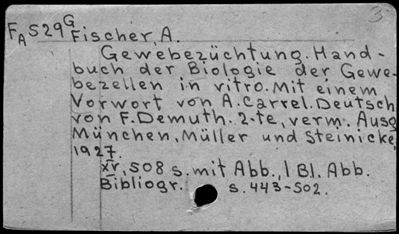 3
FAS29G
Fischer, A.
Gewebezüchtung. Hand-
buch der Biologie der Gewe-
bezellen in vitro. Mit einem
Vorwort von A. Carrel. Deutsch
von F. Demuth. 2-te, verm. Ausg
München, Müller und Steinicke,
1927.
XV, 508 s. mit Abb., 1 Bl. Abb.
Bibliogr. s. 443-502.